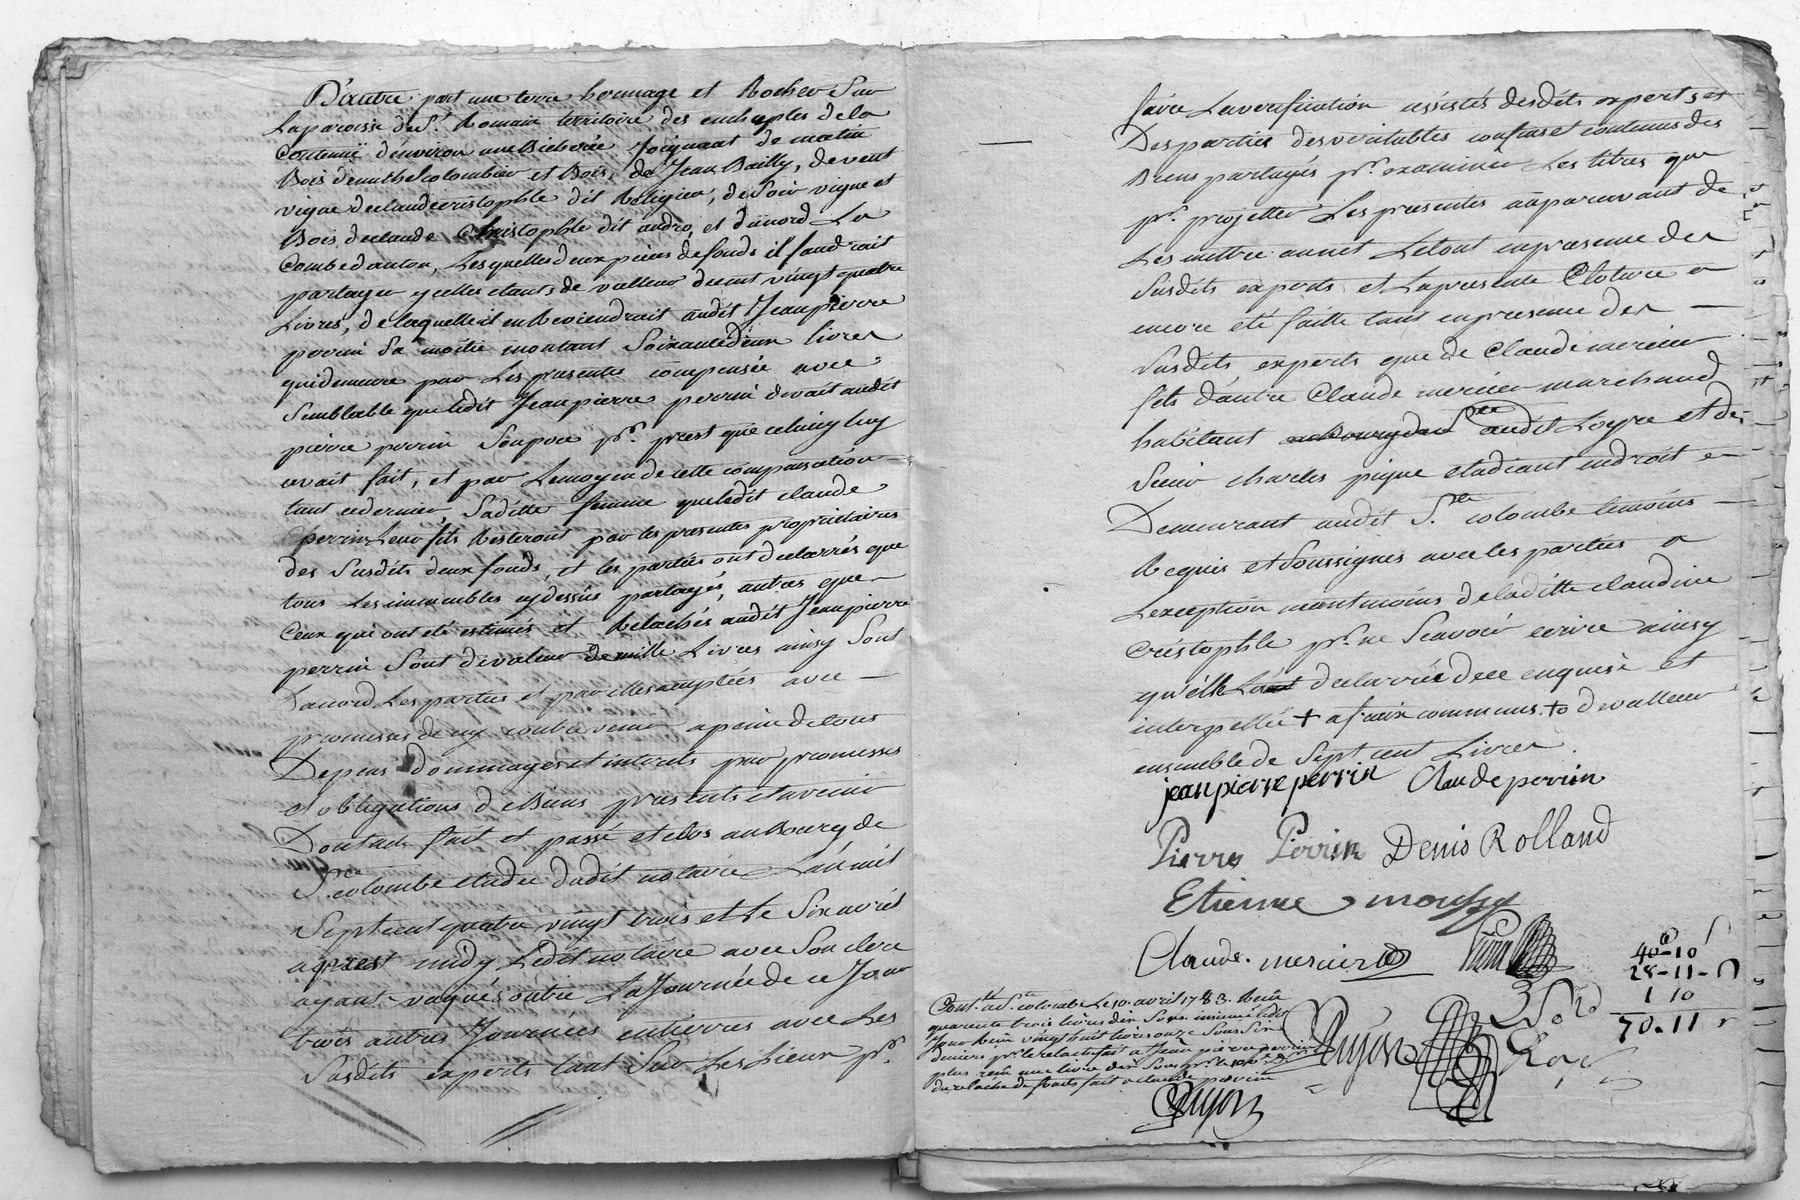 D'autre part une terre hermage et Rocher Sur
La paroisse de St. Romain territoire des
Contenüe d'environ une Bicherée Joignant de matin
Bois colombier et Bois de Jean Bailly, de vent
vigne de claude cristophle dit Religieu, de Soir vigne et
Bois de claude Christophle dit andro, et du nord La
Combe d'anton, Lesquelles deux pieces de fonds il faudrait
partager ycelles etants de valleur de cent vingt quatre
Livres, de laquelle il en Reviendrait audit Jean pierre
perrin Sa moitié montant Soixante deux livres
qui demeure par Les presentes compensée avec
Semblable que ledit Jean pierre perrin devait audit
pierre perrin Son pere pr. prest que celuicy luy
avait fait, et par Le moyen de cette compensation
tant ce dernier, Sa ditte femme que ledit claude
perrin Leur fils Resteront par les presentes propriétaires
des Susdits deux fonds, et les parties ont declarrés que
tous Les immeubles cy dessus partagés, autres que
Ceux qui ont eté estimés et Relachés audit Jean pierre
perrin Sont de valeur de mille Livres ainsy Sont
D'accord Les parties et par elles acceptées avec
promesses de n'y contrevenir a peine de tous
Depens dommages et interets par promesses
et obligations de Biens presents et avenir
Dont acte fait et passé et clos au Bourg de
Ste. colombe etude dudit notaire L'an mil
Sept cent quatre vingt trois et le Six avril
après midy Ledit notaire avec Son clerc
ayant vaqué outre La Journée de ce Jour
trois autres Journées entierres avec Les
Susdits experts tant Sur Les Lieux pr.
faire La verification assistés desdits experts et
Des parties des veritables confins et contenus des
Biens partagés pr. examiner Les titres que
pr. projetter Les presentes auparavant de
Les mettre au net Le tout en presence des
Susdits experts et La presente Cloture a
encore eté faitte tant en presence des
Susdits experts que de Claude mercier
fils d'autre Claude mercier marchand
habitant au Bourg dud audit Loyre et de
Sieur charles pique etudiant en droit
Demeurant audit Ste. colombe temoins
Requis et Soussignés avec les parties a
L'exception neantmoins de laditte claudine
Cristophle pr. ne Scavoir ecrire ainsy
qu'elle L'a declarré de ce enquise et
interpellée + a fraix communs. +o de valleur
ensemble de Sept cent Livres.
jean pierre perrin Claude perrin
Pierre Perrin Denis Rolland
Etienne moussy
Claude. mercier
40-10
28-11-
1 10
70-11
Contlé. a Ste. colombe Le 10. avril 1783. Reçu
quarante trois livres dix Sous insinué led.
Jour Reçu vingt huit livres onze Sous Six
deniers pr. le relache fait a Jean pierre perrin
plus reçu une livre dix Sous pr.
de relache de fonds fait a claude perrin
Guyon
Guyon